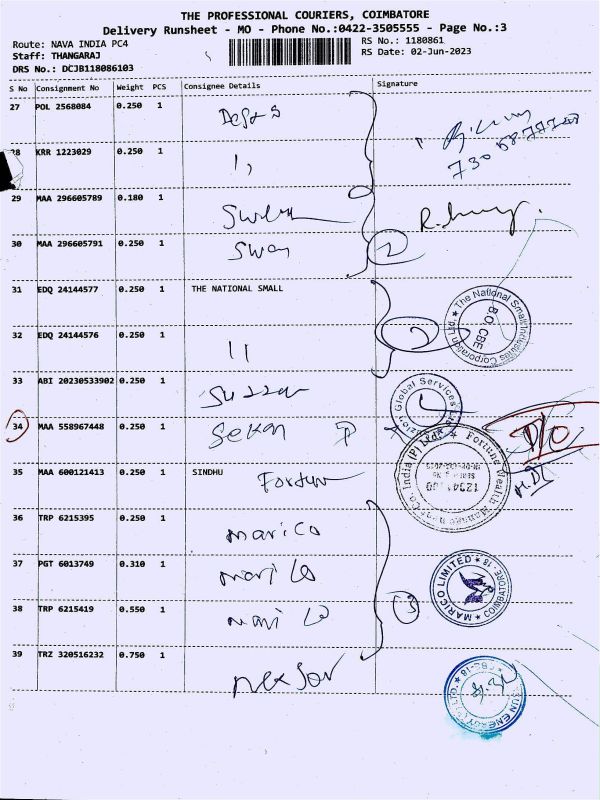 THE PROFESSIONAL COURIERS, COIMBATORE
Delivery Runsheet - MO - Phone No.:0422-3505555 - Page No.:3
Route: NAVA INDIA PC4
RS No.: 1180861
Staff: THANGARAJ
RS Date: 02-Jun-2023
DRS No.: DCJB118086103
S No Consignment No Weight PCS Consignee Details Signature
27 POL 2568084 0.250 1
28 KRR 1223029 0.250 1 ''
29 MAA 296605789 0.180 1
30 MAA 296605791 0.250 1 Swan 2
31 EDQ 24144577 0.250 1 THE NATIONAL SMALL
The National Small Industries Corporation Ltd.
B.O. CBE
32 EDQ 24144576 0.250 1 11 2
33 ABI 20230533902 0.250 1
Global Services
34 MAA 558967448 0.250 1 Sekan P
D/O
35 MAA 600121413 0.250 1 SINDHU
Fortun
Fortune Wealth Management Co. India (P) Ltd.
36 TRP 6215395 0.250 1 marico
37 PGT 6013749 0.310 1 marico
MARICO LIMITED
COIMBATORE-18
38 TRP 6215419 0.550 1 marico 3
39 TRZ 320516232 0.750 1
CBE-18